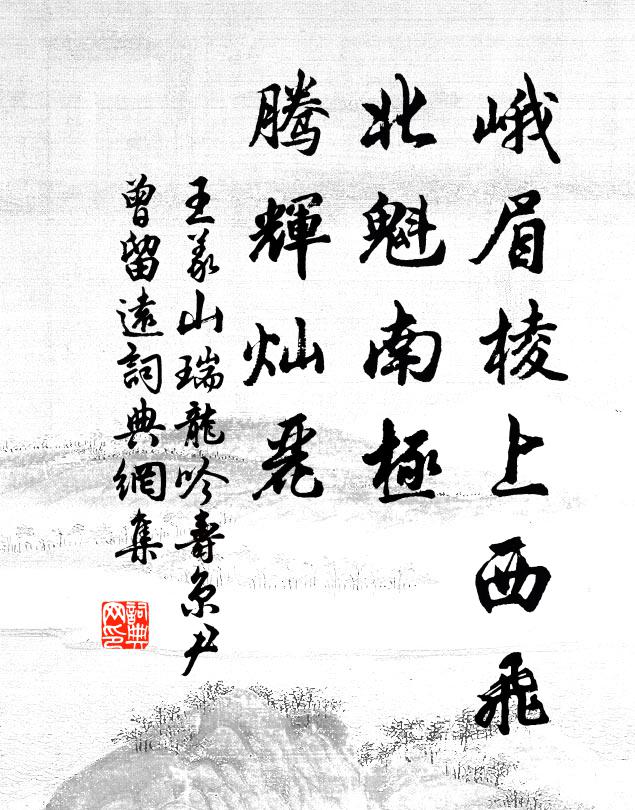 峨眉棱上西飛
北魁南極
騰輝灿麗
王义山瑞龍吟壽京尹
曾留遠詞典網集
詞典网印